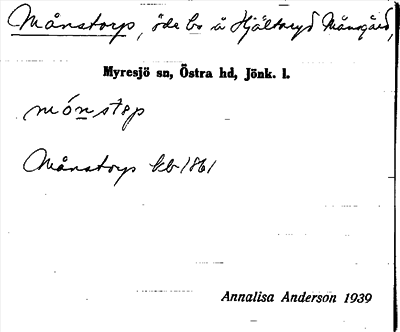 Månstorp, öde bs å Hjältaryd Månsgård,
Myresjö sn, Östra hd, Jönk. l.
mónstɘp
Månstorp kb 1861
Annalisa Anderson 1939